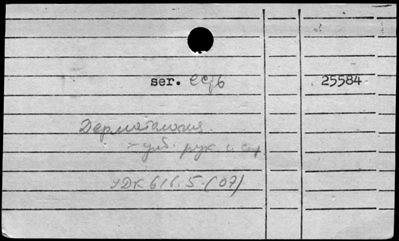 ser. 25584
Дерматология
- уч. рук. и
УДК 616.5 (07)